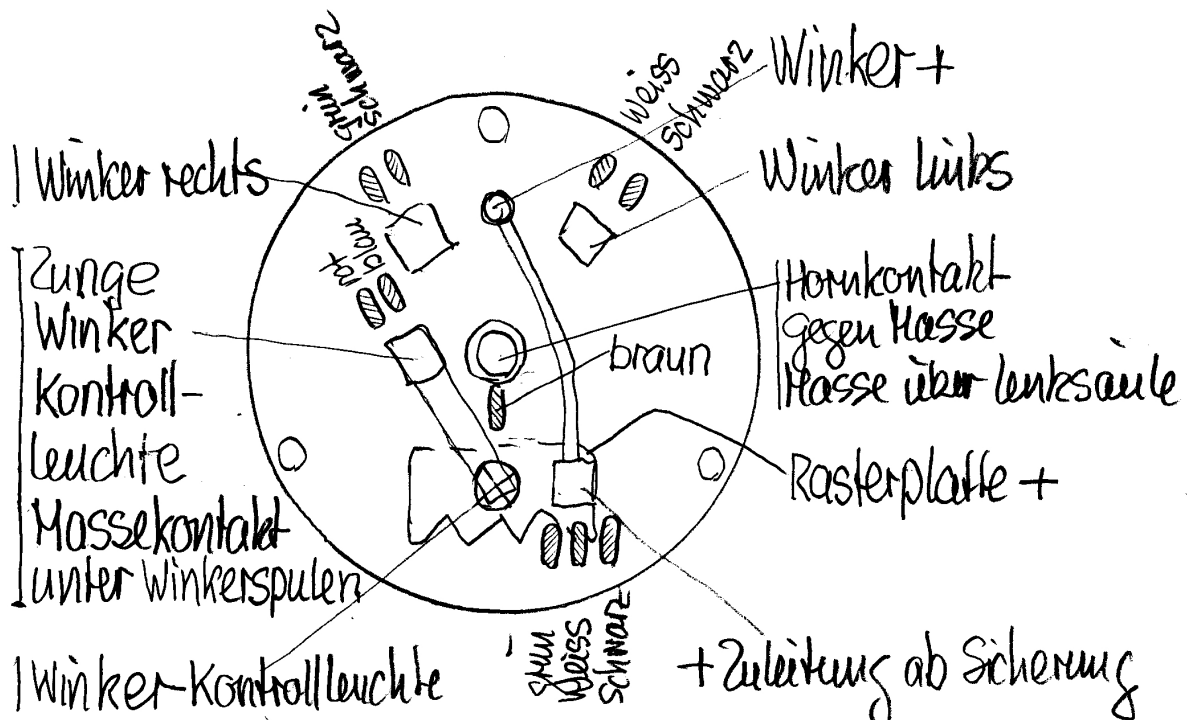 grün
schwarz
weiss
schwarz
Winker +
Winker rechts
Winker links
rot
blau
Zunge
Winker
Kontroll-
leuchte
Massekontakt
unter Winkerspulen
Hornkontakt
gegen Masse
Masse über Lenksäule
braun
Rasterplatte +
Winker-Kontrollleuchte
grün
weiss
schwarz
+ Zuleitung ab Sicherung